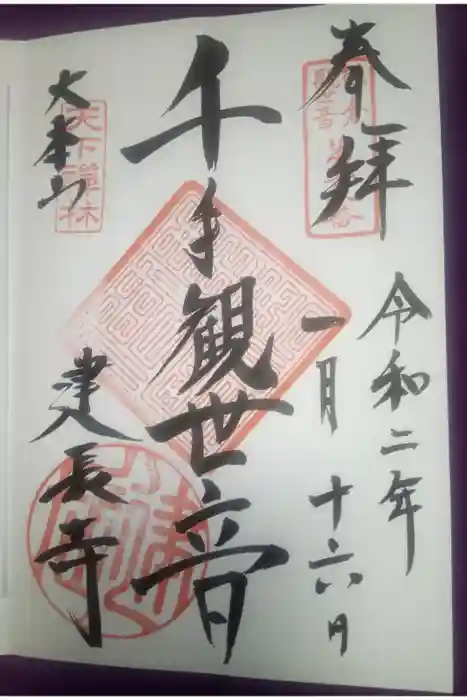 奉拝
令和二年
一月十六日
千手観世音
大本山
天下禅林
建長寺